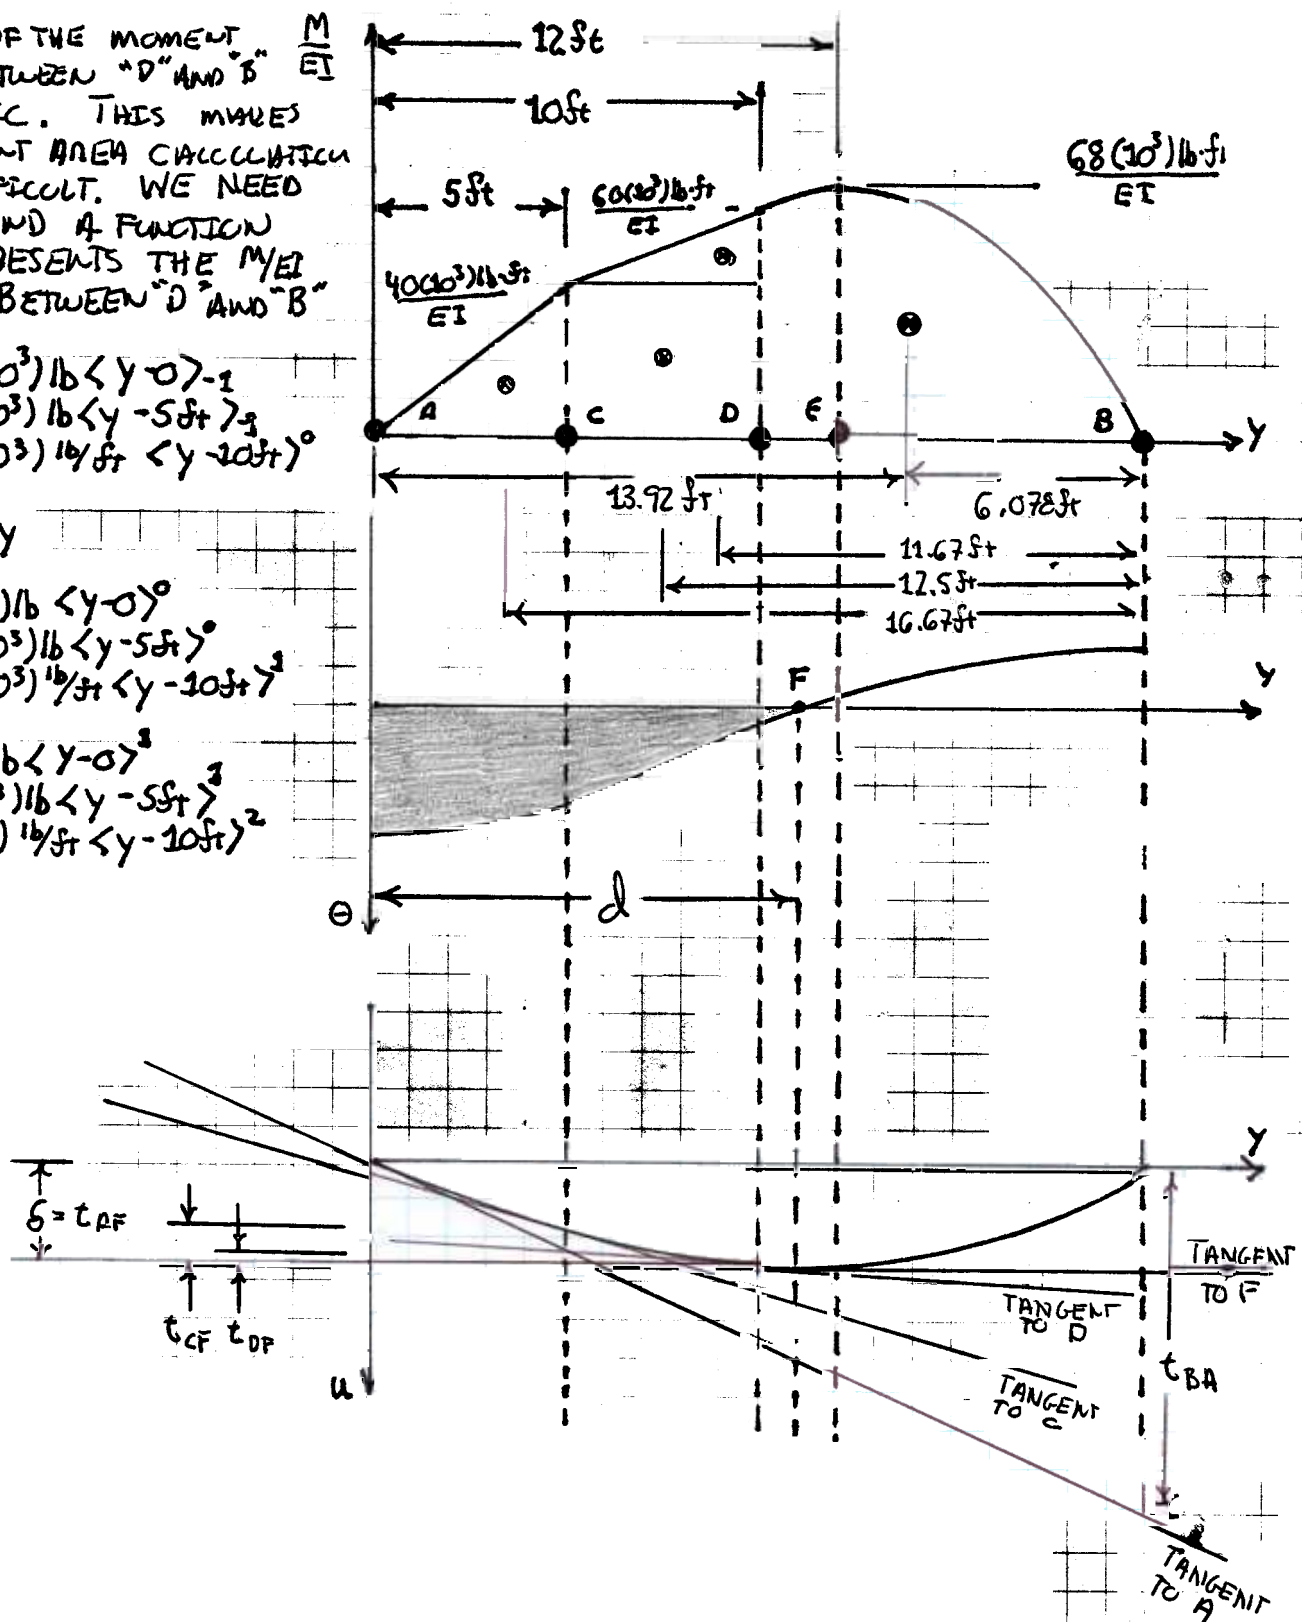 OF THE MOMENT
BETWEEN "D" AND "B"
IC. THIS MAKES
AREA CALCULATION
DIFFICULT. WE NEED
A FUNCTION
THE M/EI
BETWEEN "D" AND "B"
0³) lb <y-0>-1
0³) lb <y-5ft>-1
0³) lb/ft <y-10ft>⁰
y
) lb <y-0>⁰
0³) lb <y-5ft>⁰
0³) lb/ft <y-10ft>¹
lb <y-0>¹
³) lb <y-5ft>¹
) lb/ft <y-10ft>²
M
EI
12ft
10ft
5ft
60(10³) lb·ft
EI
68(10³) lb·ft
EI
40(10³) lb·ft
EI
A
C
D
E
B
y
13.92 ft
6.078ft
11.67ft
12.5ft
16.67ft
F
y
d
θ
y
δ = tAF
tCF
tDF
u
TANGENT
TO F
TANGENT
TO D
TANGENT
TO C
tBA
TANGENT
TO A